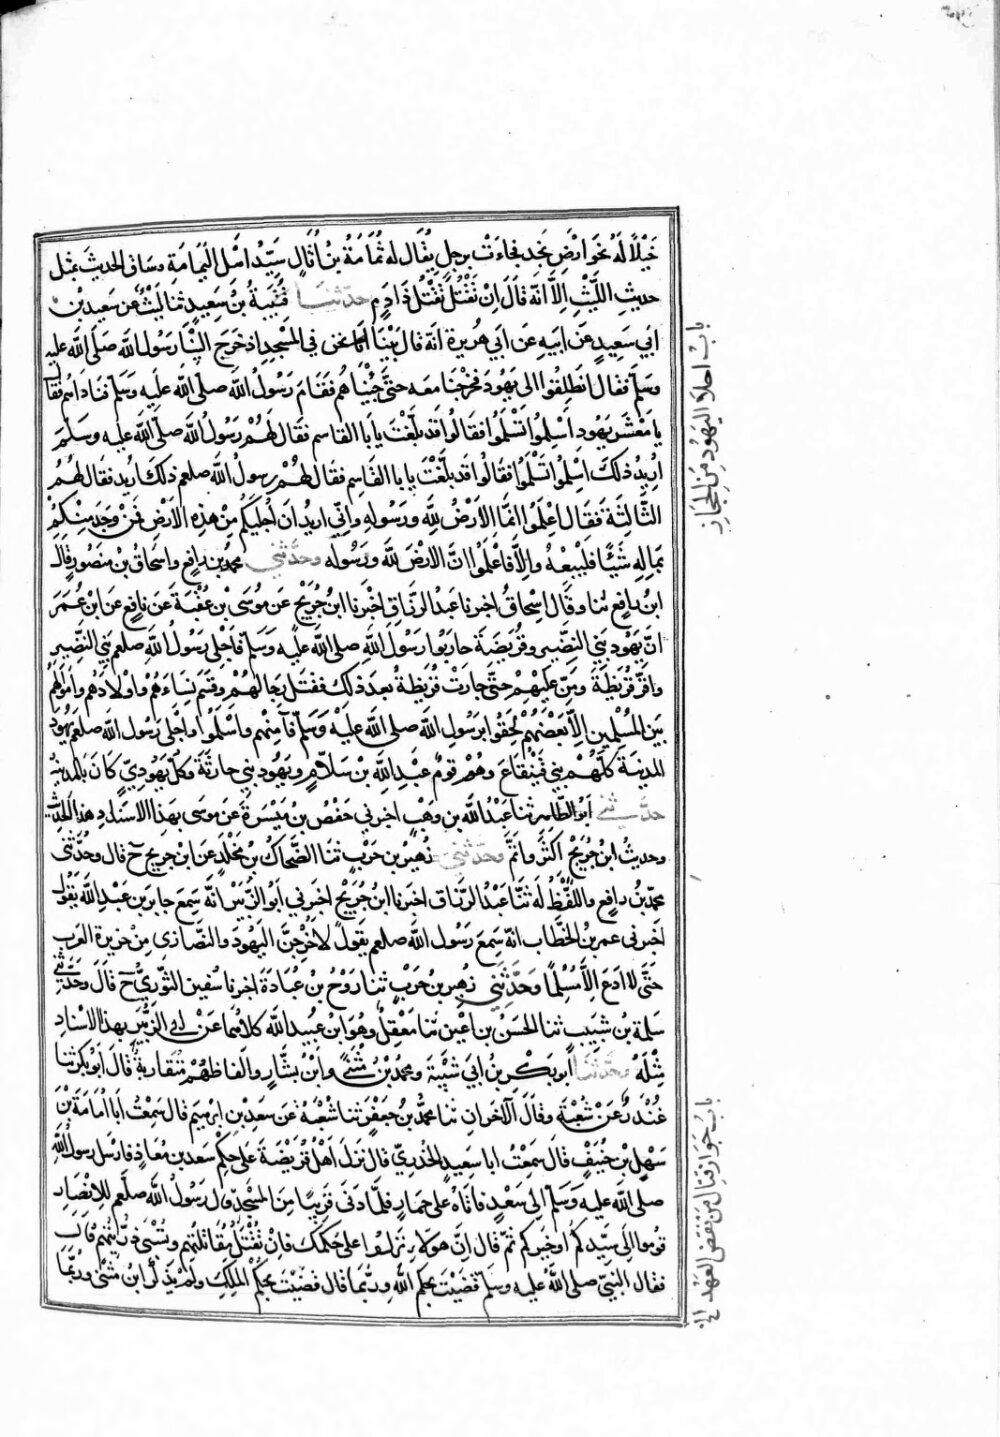 خَيْلًا لَهُ نحو اَرْضِ نجد فجاءَتْ برجلٍ يُقَالُ له ثُمَامَةُ بْنُ اُثَالٍ سَيّدُ اهْلِ اليَمَامَةِ وساق الحديثَ بمثل
حديثِ اللَّيْثِ اِلَّا انّه قالَ اِنْ تَقْتُلْنِي تَقْتُلْ ذَا دَمٍ حدّثنا قُتَيْبَةُ بْنُ سَعِيدٍ ثنا ليْثٌ عن سعيد بْن
ابي سَعِيدٍ عَن اَبيهِ عَن اَبي هُرَيرةَ انّه قالَ بَيْنَا نحن في المَسْجِدِ اِذ خَرَجَ اِلَيْنَا رَسُولُ اللَّه صَلَى اللَّه عليه
وسَلّم فقال انطَلِقُوا الى يَهُودَ فخرَجْنَا معه حتَّى جِئْنَاهُم فقَامَ رَسُولُ اللَّه صلّى اللَّه عَلَيه وَسَلّم فنادَاهُم فقال
يا مَعْشَرَ يَهُودَ اَسْلِمُوا تَسْلَمُوا فقَالُوا قَد بَلَّغْتَ يا بَا القاسِم فقَال لَهُمْ رَسُولُ اللَّه صلّى اللَّه عليه وسَلّمَ
اُرِيدُ ذلكَ اَسْلِمُوا تَسْلَمُوا فقَالُوا قَد بَلَّغْتَ يا بَا القَاسِمِ فقَال لهُمْ رسولُ اللَّه صلعم ذلكَ اُرِيد فقَال لهُمُ
الثَّالِثَةَ فقَال اعْلَمُوا انَّمَا الاَرْضُ للَّهِ ورَسُولهِ واِنِّي اُريدُ اَن اُجْلِيَكُم مِنْ هذِهِ الاَرْضِ فَمَنْ وجَدَ مِنْكُمْ
بمَالِهِ شيْئًا فلْيَبِعْهُ واِلَّا فاعْلَمُوا انَّ الاَرْضَ للَّه ورَسُوله وحدّثني محمّدُ بن رافِعٍ واسحَاقُ بْن مَنصُورٍ قالَ
ابنُ رافِعٍ ثنا وقَال اِسْحاقُ اخبرنا عبدُ الرزّاقِ اخبَرنا ابنُ جُرَيْجٍ عن مُوسَى بْن عُقْبَةَ عَن نافِعٍ عَن ابْن عُمَرَ
انّ يَهُودَ بَني النَّضِيرِ وقُرَيضَةَ حارَبُوا رَسُولَ اللَّهِ صلى اللَّه عليْه وَسَلّم فاَجْلَى رَسُولُ اللَّه صلعم بَني النَّضِيرِ
واَقَرَّ قُرَيْظَةَ ومَنَّ عَليْهِمْ حتَّى حارَبتْ قُرَيظَةُ بعدَ ذلكَ فقتَلَ رجَالَهُمْ وقَسَمَ نِسَاءَهُمْ واَوْلادَهُم واَموَالَهُمْ
بَين المُسْلِمِين اِلَّا بَعْضَهُمْ لَحِقُوا برَسُولِ اللَّه صلى اللَّه عَلَيْه وَسَلَّم فآمنهُم واَسْلَمُوا واَجْلَى رَسُولُ اللَّه صلعم يَهُودَ
المدينَةِ كلَّهُمْ بني قَيْنُقَاعَ وهُمْ قومُ عَبْدِ اللَّهِ بن سَلامٍ ويَهُودَ بني حارِثَةَ وكُلَّ يَهُوديٍّ كَانَ بالمدينَةِ
حدّثني اَبو الطَّاهر ثنا عَبْدُ اللَّه بن وهْبٍ اخبرني حَفْصُ بن مَيْسَرَةَ عَن موسَى بهَذا الاسنادِ هذا الحديث
وحديثُ ابن جُرَيْجٍ اَكثَرُ واَتمُّ وحدّثني زهيرُ بن حَربٍ ثنا الضَّحاكُ بن مَخْلَدٍ عَن ابْن جريج حَ قال وحدّثني
محمّدُ بْنُ رافِعٍ واللّفْظُ لَه ثنا عَبْدُ الرّزاقِ اخبَرنا ابْنُ جُرَيْجٍ اخبَرني اَبُو الزُّبَيْر انّه سَمِعَ جابرَ بن عَبْدِ اللَّه يَقُول
اَخبَرني عمَر بن الخَطَّاب انّه سَمِعَ رَسولَ اللَّه صلعم يَقُولُ لاُخْرِجَنَّ اليَهُودَ والنَّصَارَى مِنْ جزيرة العَرَب
حَتَّى لا اَدَعَ اِلَّا مُسْلِمًا وحَدّثَني زهيرُ بن حَربٍ ثنا رَوْحُ بن عُبَادَةَ اخبرنا سُفين الثّوريُّ حَ قالَ وحَدّثني
سَلمةُ بن شَبيبٍ ثنا الحسَنُ بن اَعْيَن ثنا مَعْقِلٌ وهُوَ ابْن عُبيد اللَّه كلاهُما عَنْ ابي الزُّبَيْر بهذا الاِسْنَادِ
مِثْلَهُ وحَدَّثنَا اَبو بَكْر بن ابي شَيْبَةَ ومحمّدُ بْن مُثَنَّى وابْنُ بَشَّارٍ والفاظهُمْ مُتقَاربةٌ قالَ اَبو بكرٍ ثنا
غُنْدَرٌ عَنْ شُعْبَةَ وقَالَ الآخَرانِ ثنا محمَّدُ بن جَعْفَرٍ ثنا شُعْبَةُ عَن سَعدِ بن ابرهيمَ قالَ سَمِعْتُ ابَا اُمَامَةَ بْنَ
سَهْلِ بن حُنَيْفٍ قالَ سَمِعْتُ ابا سعيدٍ الخُدريَّ قال نَزلَ اَهْلُ قُرَيْضَةَ على حُكمِ سَعد بن مُعَاذٍ فارسل رسولُ اللَّه
صلى اللَّه عليه وَسَلّم اِلى سَعْدٍ فاَتَاهُ على حمَارٍ فلمَّا دَنَى قَريبًا مِنَ المَسْجِدِ قال رَسُولُ اللَّه صلعم للاَنْصَارِ
قومُوا اِلَى سَيّدِكُم اَوْ خيرِكم ثمّ قالَ اِنَّ هؤلاءِ نزلُوا على حُكمِكَ قال تَقْتُلُ مُقَاتِلَتَهُم وتُسْبَى ذُرّيّتهم قال
فقال النّبيّ صلى اللَّه عَليه وسلّم قضَيْتَ بحُكم اللَّه ورُبّمَا قالَ قضَيْتَ بحُكمِ المَلِكِ ولَمْ يَذكُر ابنُ مُثنّى ورُبَّما
باب اجلاء اليَهُودِ مِنَ الحِجَازِ
باب جَوازِ قِتَال مَن نقضَ العَهد